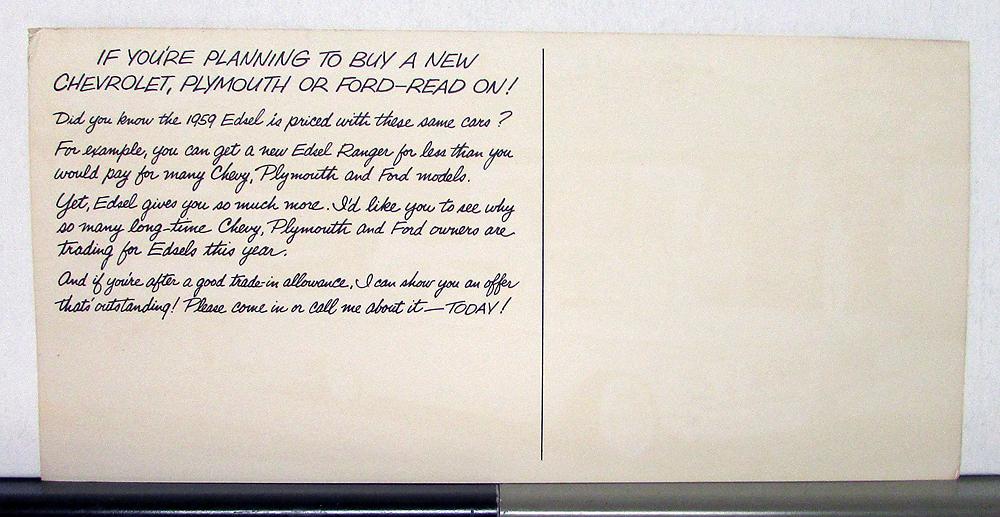 IF YOU'RE PLANNING TO BUY A NEW
CHEVROLET, PLYMOUTH OR FORD—READ ON!
Did you know the 1959 Edsel is priced with these same cars?
For example, you can get a new Edsel Ranger for less than you
would pay for many Chevy, Plymouth and Ford models.
Yet, Edsel gives you so much more. I'd like you to see why
so many long-time Chevy, Plymouth and Ford owners are
trading for Edsels this year.
And if you're after a good trade-in allowance, I can show you an offer
that's outstanding! Please come in or call me about it—TODAY!